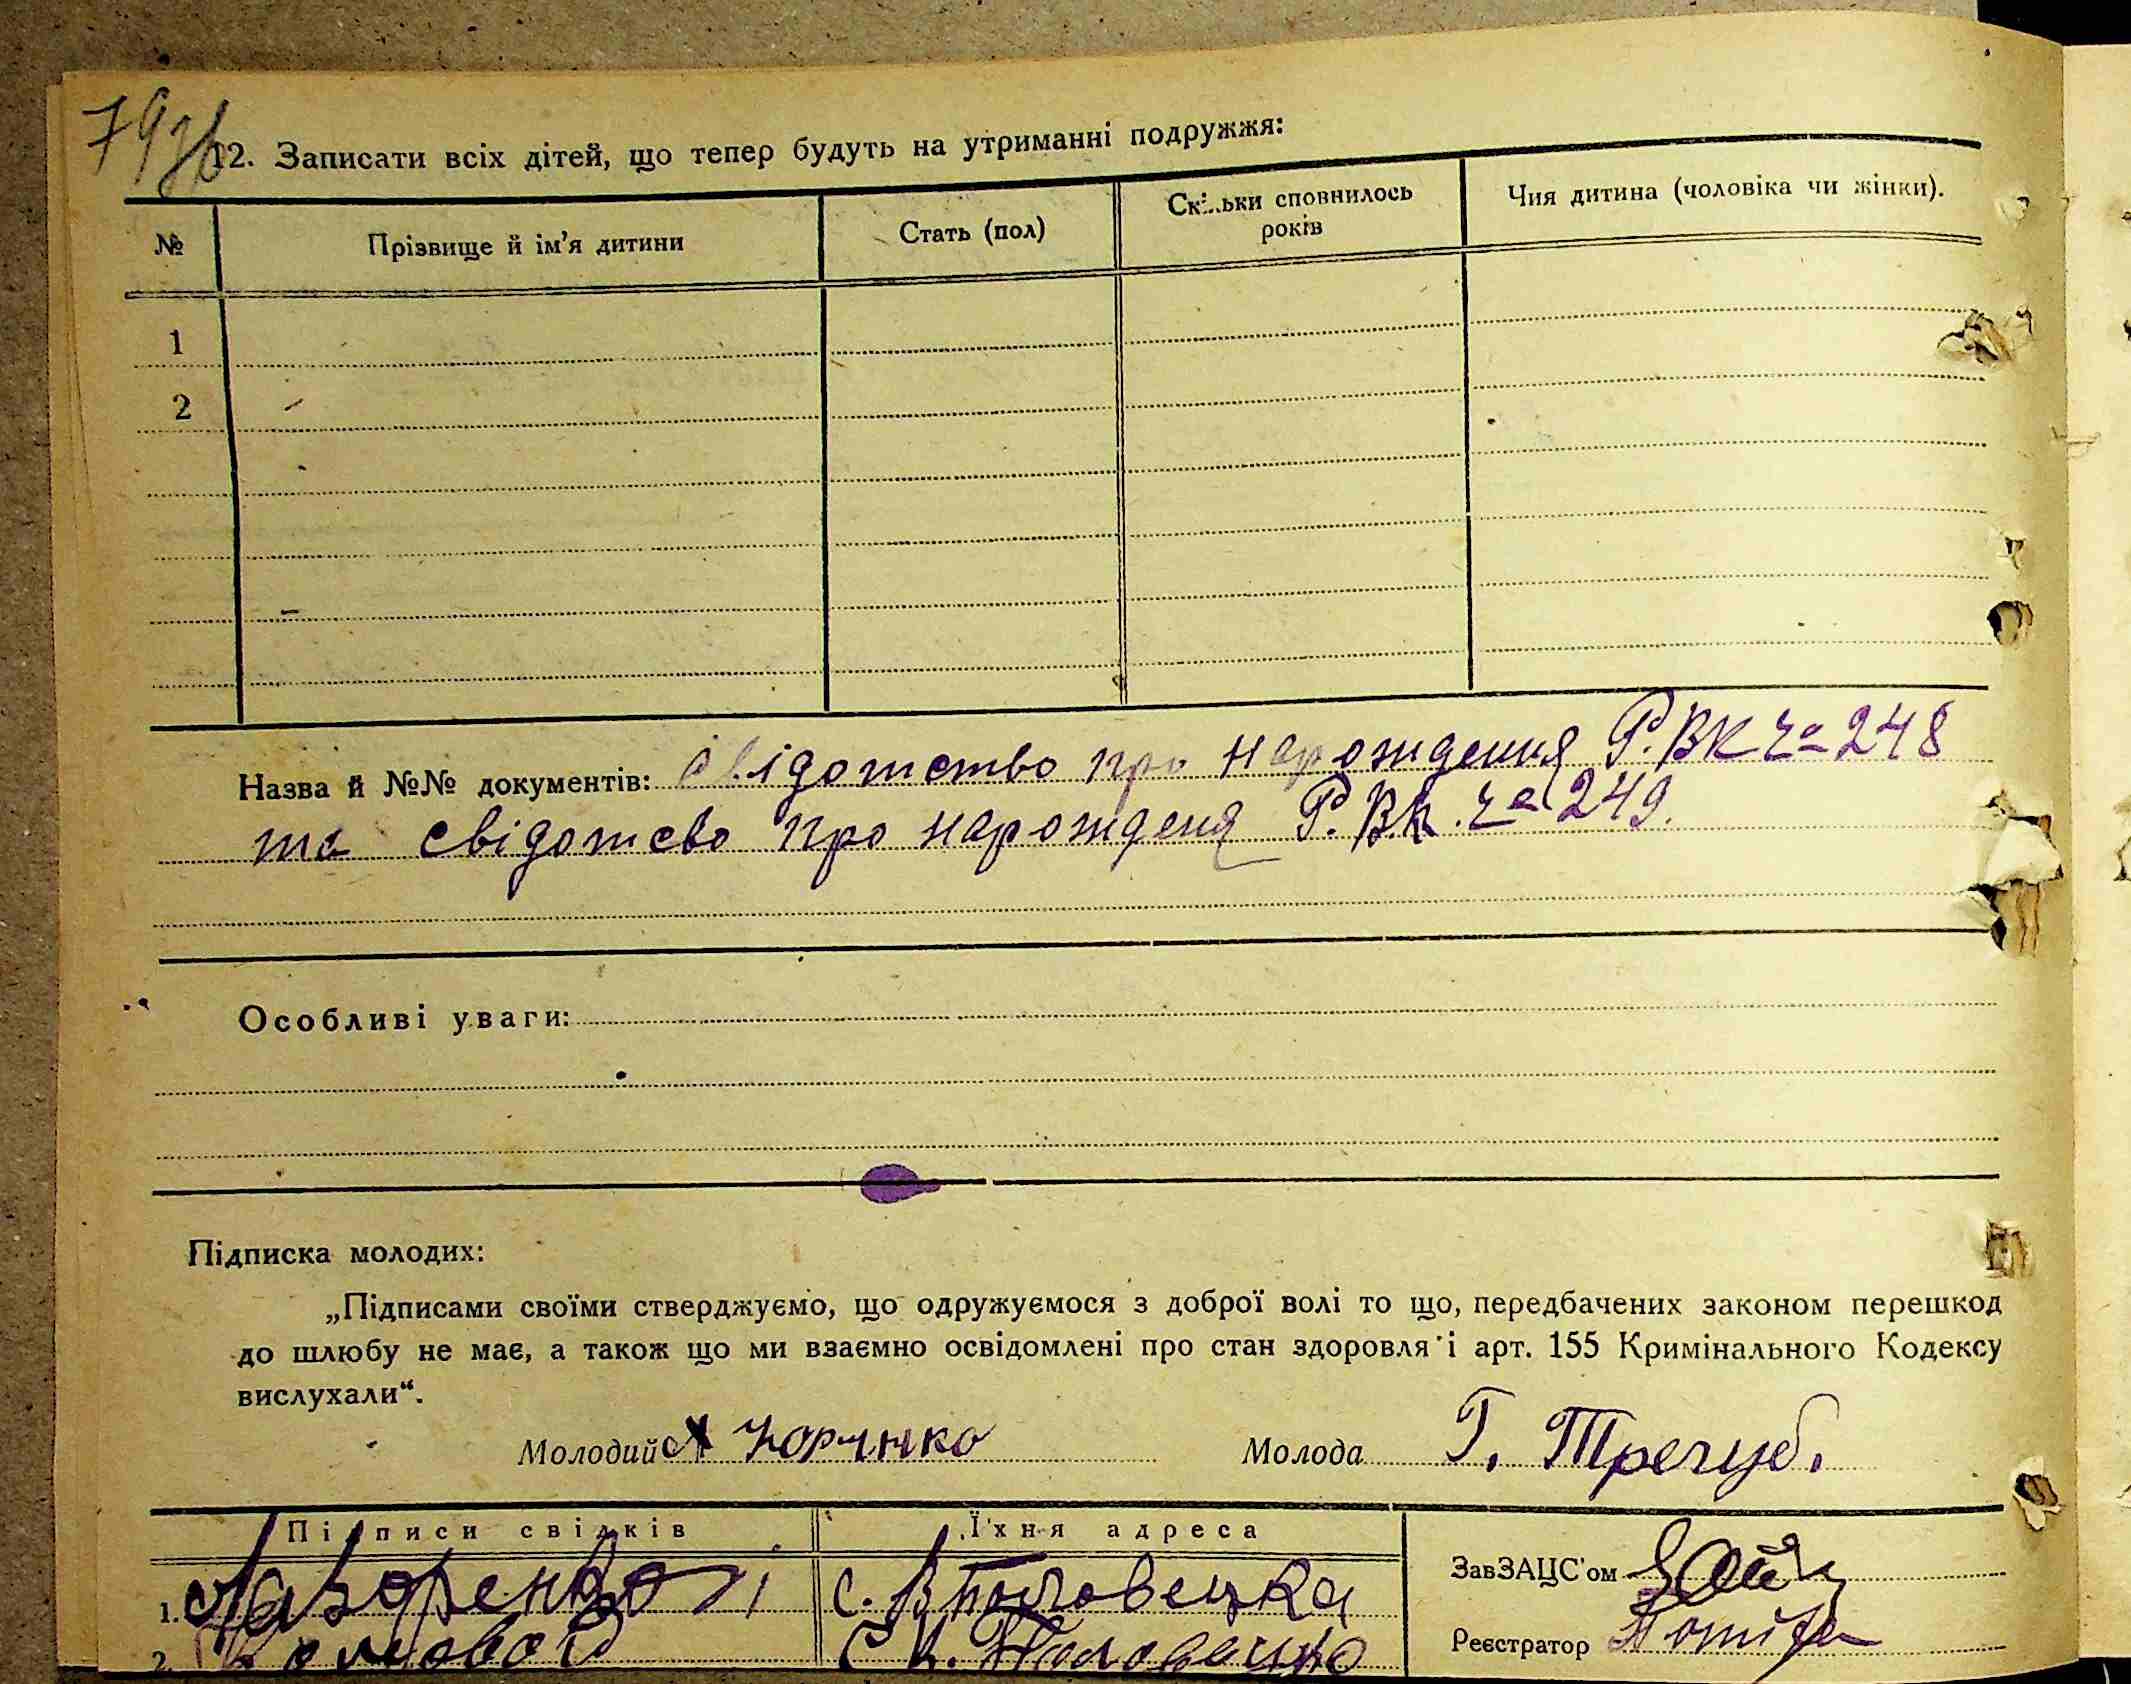 79зв
12. Записати всіх дітей, що тепер будуть на утриманні подружжя:
№ Прізвище й ім’я дитини Стать (пол) Скільки сповнилось років Чия дитина (чоловіка чи жінки).
1
2
Назва й №№ документів: свідотство про нарождения Р.ВК ча 248
та свідотсво про нарожденя Р.В.К. ча 249.
Особливі уваги:
Підписка молодих:
„Підписами своїми стверджуємо, що одружуємося з доброї волі то що, передбачених законом перешкод
до шлюбу не має, а також що ми взаємно освідомлені про стан здоровля і арт. 155 Кримінального Кодексу
вислухали“.
Молодий Молода Г. Тречуб.
Підписи свідків Їхня адреса
ЗавЗАЦС'ом
1. с. В Половецка
2. С В. Половецко
Реєстратор